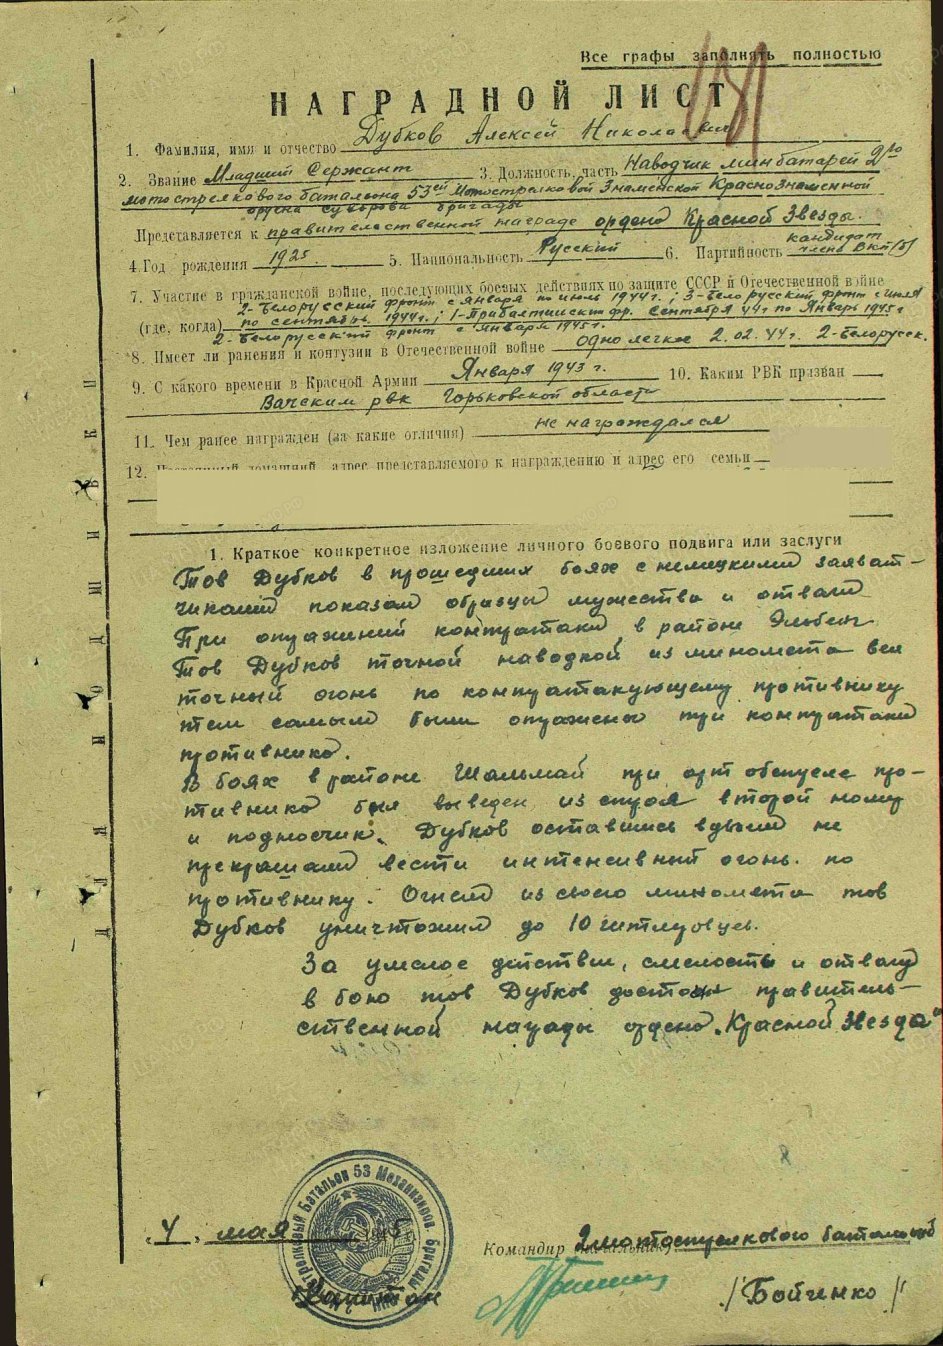 Все графы заполнять полностью
НАГРАДНОЙ ЛИСТ
1. Фамилия, имя и отчество Дубков Алексей Николаевич
2. Звание Младший Сержант 3. Должность, часть Наводчик минбатареи 2го
мотострелкового батальона 53ей Мотострелковой Знаменской Краснознаменной
ордена Суворова бригады
Представляется к правительственной награде ордена Красной Звезды.
4. Год рождения 1925. 5. Национальность Русский 6. Партийность кандидат члена ВКП(б)
7. Участие в гражданской войне, последующих боевых действиях по защите СССР и Отечественной войне
2-Белорусский фронт с января по июль 1944г.; 3-Белорусский фронт с июля
(где, когда) по сентябрь 1944г.; 1-Прибалтийский фр. сентября 44г по Январь 1945г
2-Белорусский фронт с января 1945г.
8. Имеет ли ранения и контузии в Отечественной войне одно легкое 2.02.44г. 2-Белорусск.
9. С какого времени в Красной Армии Января 1943 г. 10. Каким РВК призван
Вачским рвк Горьковской области
11. Чем ранее награжден (за какие отличия) не награждался
12. Постоянный домашний адрес представляемого к награждению и адрес его семьи
1. Краткое конкретное изложение личного боевого подвига или заслуги
Тов Дубков в прошедших боях с немецкими захват-
чиками показал образцы мужества и отваги
При отражении контратаки в районе Эльбинг
Тов Дубков точной наводкой из миномета вел
точный огонь по контратакующему противнику
тем самым были отражены три контратаки
противника.
В боях в районе Шальмай при арт обстреле про-
тивника был выведен из строя второй номер
и подносчик. Дубков оставшись вдвоем не
прекращал вести интенсивный огонь по
противнику. Огнем из своего миномета тов
Дубков уничтожил до 10 гитлеровцев.
За умелое действие, смелость и отвагу
в бою тов Дубков достоин правитель-
ственной награды ордена "Красной Звезда"
Для подшивки
"4" мая 1945
Командир (начальник) 2 мотострелкового батальона
Капитан /Бойченко/
Мотострелковый Батальон 53 Механизиров. Бригады